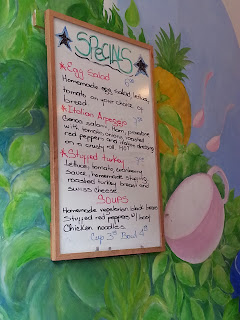 SPECIALS
Egg Salad
Homemade egg salad, lettuce,
tomato, on your choice of
bread
Italian Arpeggio
Genoa salami, Ham, provolone
with tomato, onions, roasted
red peppers and italian dressing
on a crusty roll. HOT
Stuffed Turkey
Lettuce, tomato, cranberry
sauce, homemade stuffing,
roasted turkey breast and
swiss cheese
SOUPS
Homemade vegetarian black bean
Stuffed red peppers w/ beef
Chicken noodle
Cup Bowl